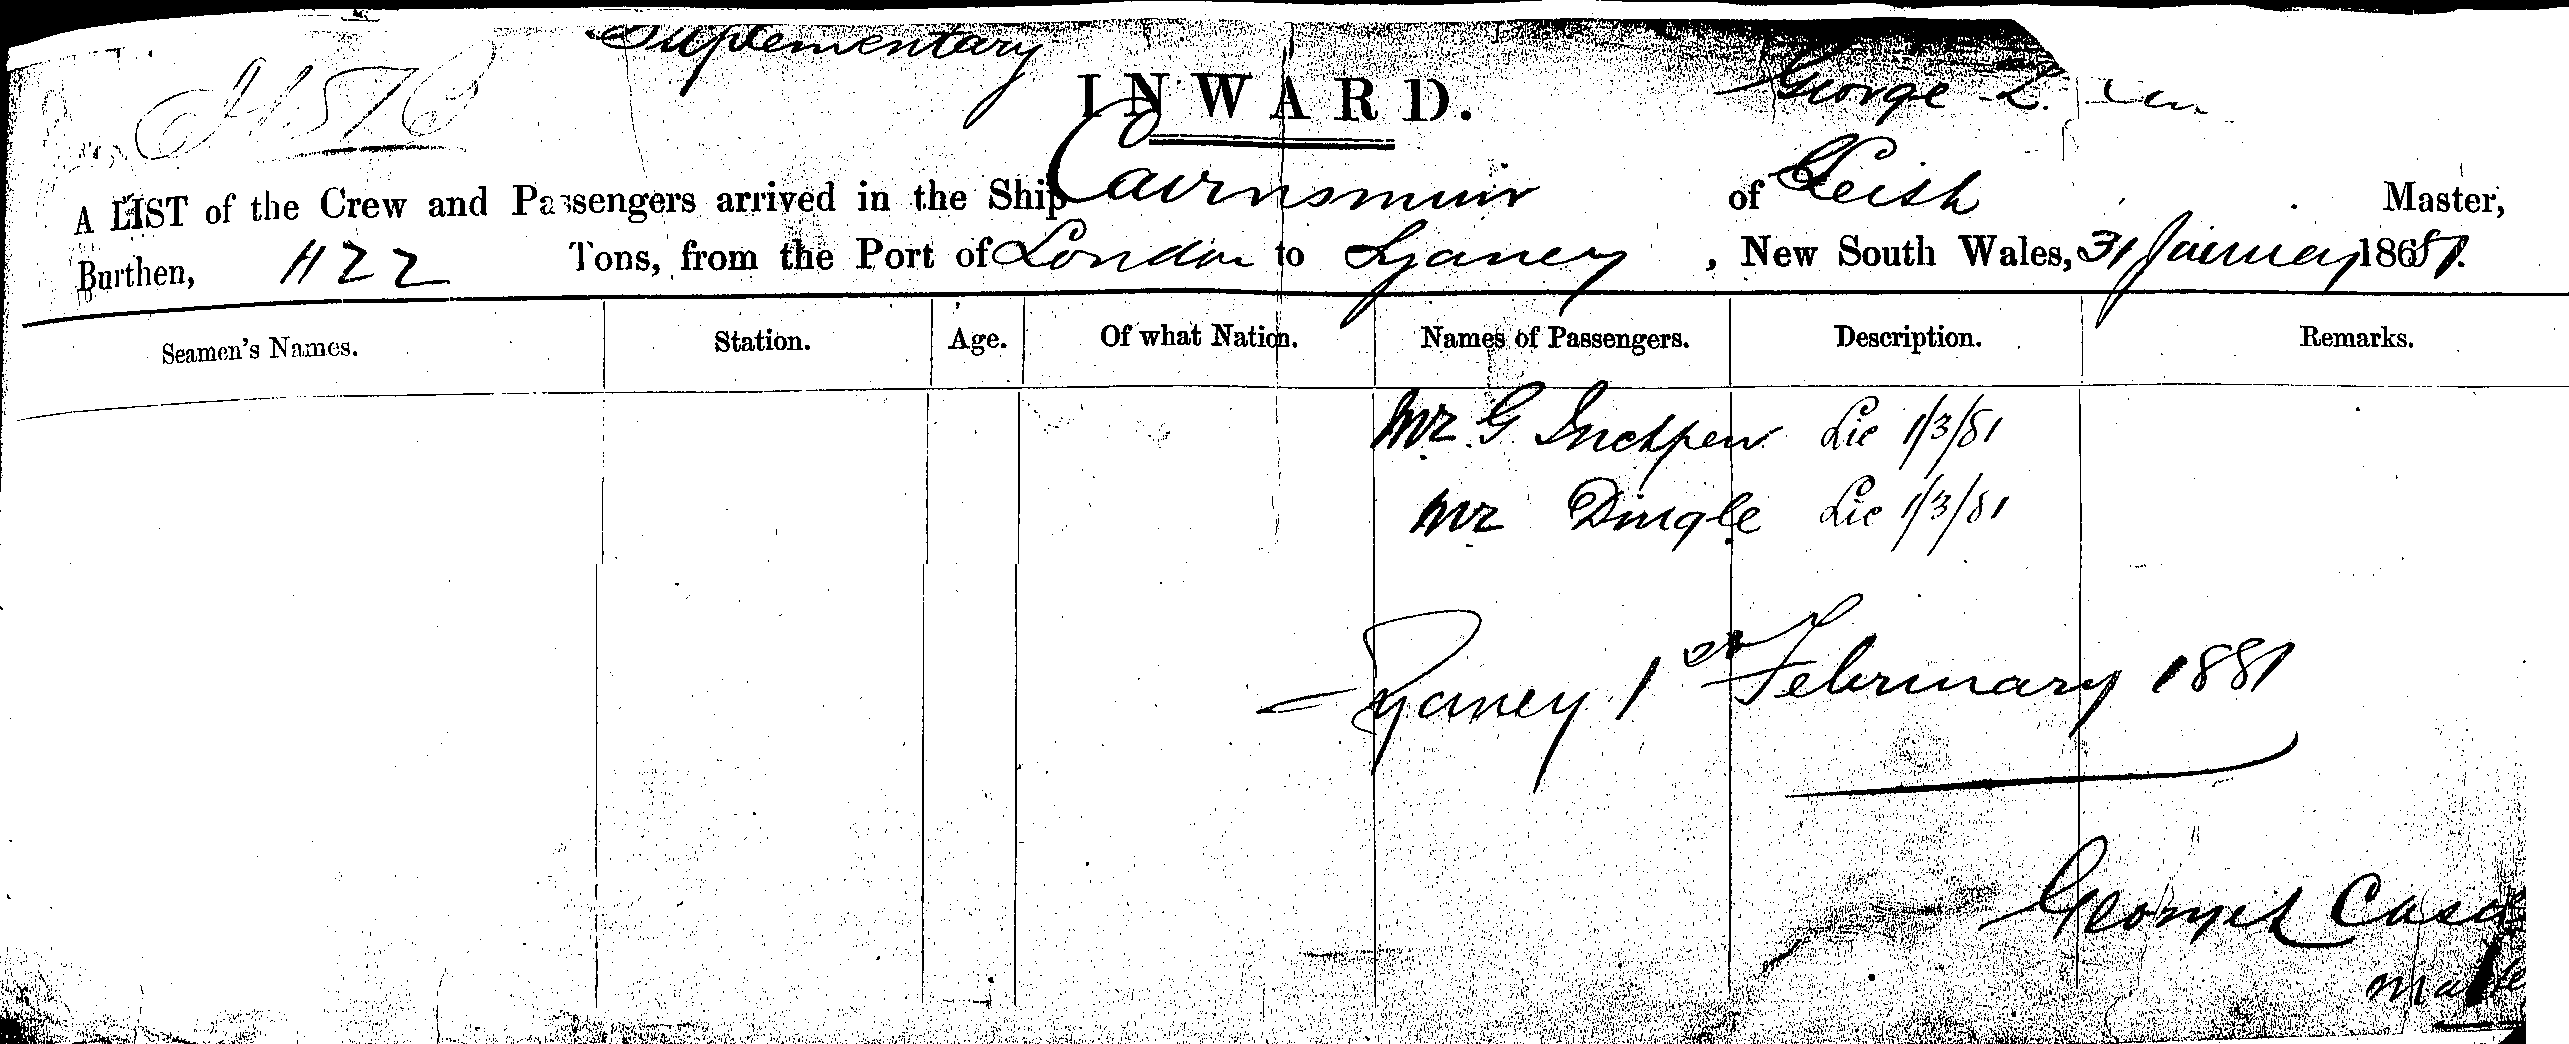 Suplementary
INWARD.
George L.
A LIST of the Crew and Passengers arrived in the Ship Cairnsmuir of Leith Master,
Burthen, 1122 Tons, from the Port of London to Sydney, New South Wales, 31 January 1881.
Seamen's Names. Station. Age. Of what Nation. Names of Passengers. Description. Remarks.
Mr G Inchpen Lic 1/3/81
Mr Dingle Lic 1/3/81
Sydney 1st February 1881
George L Case
Master